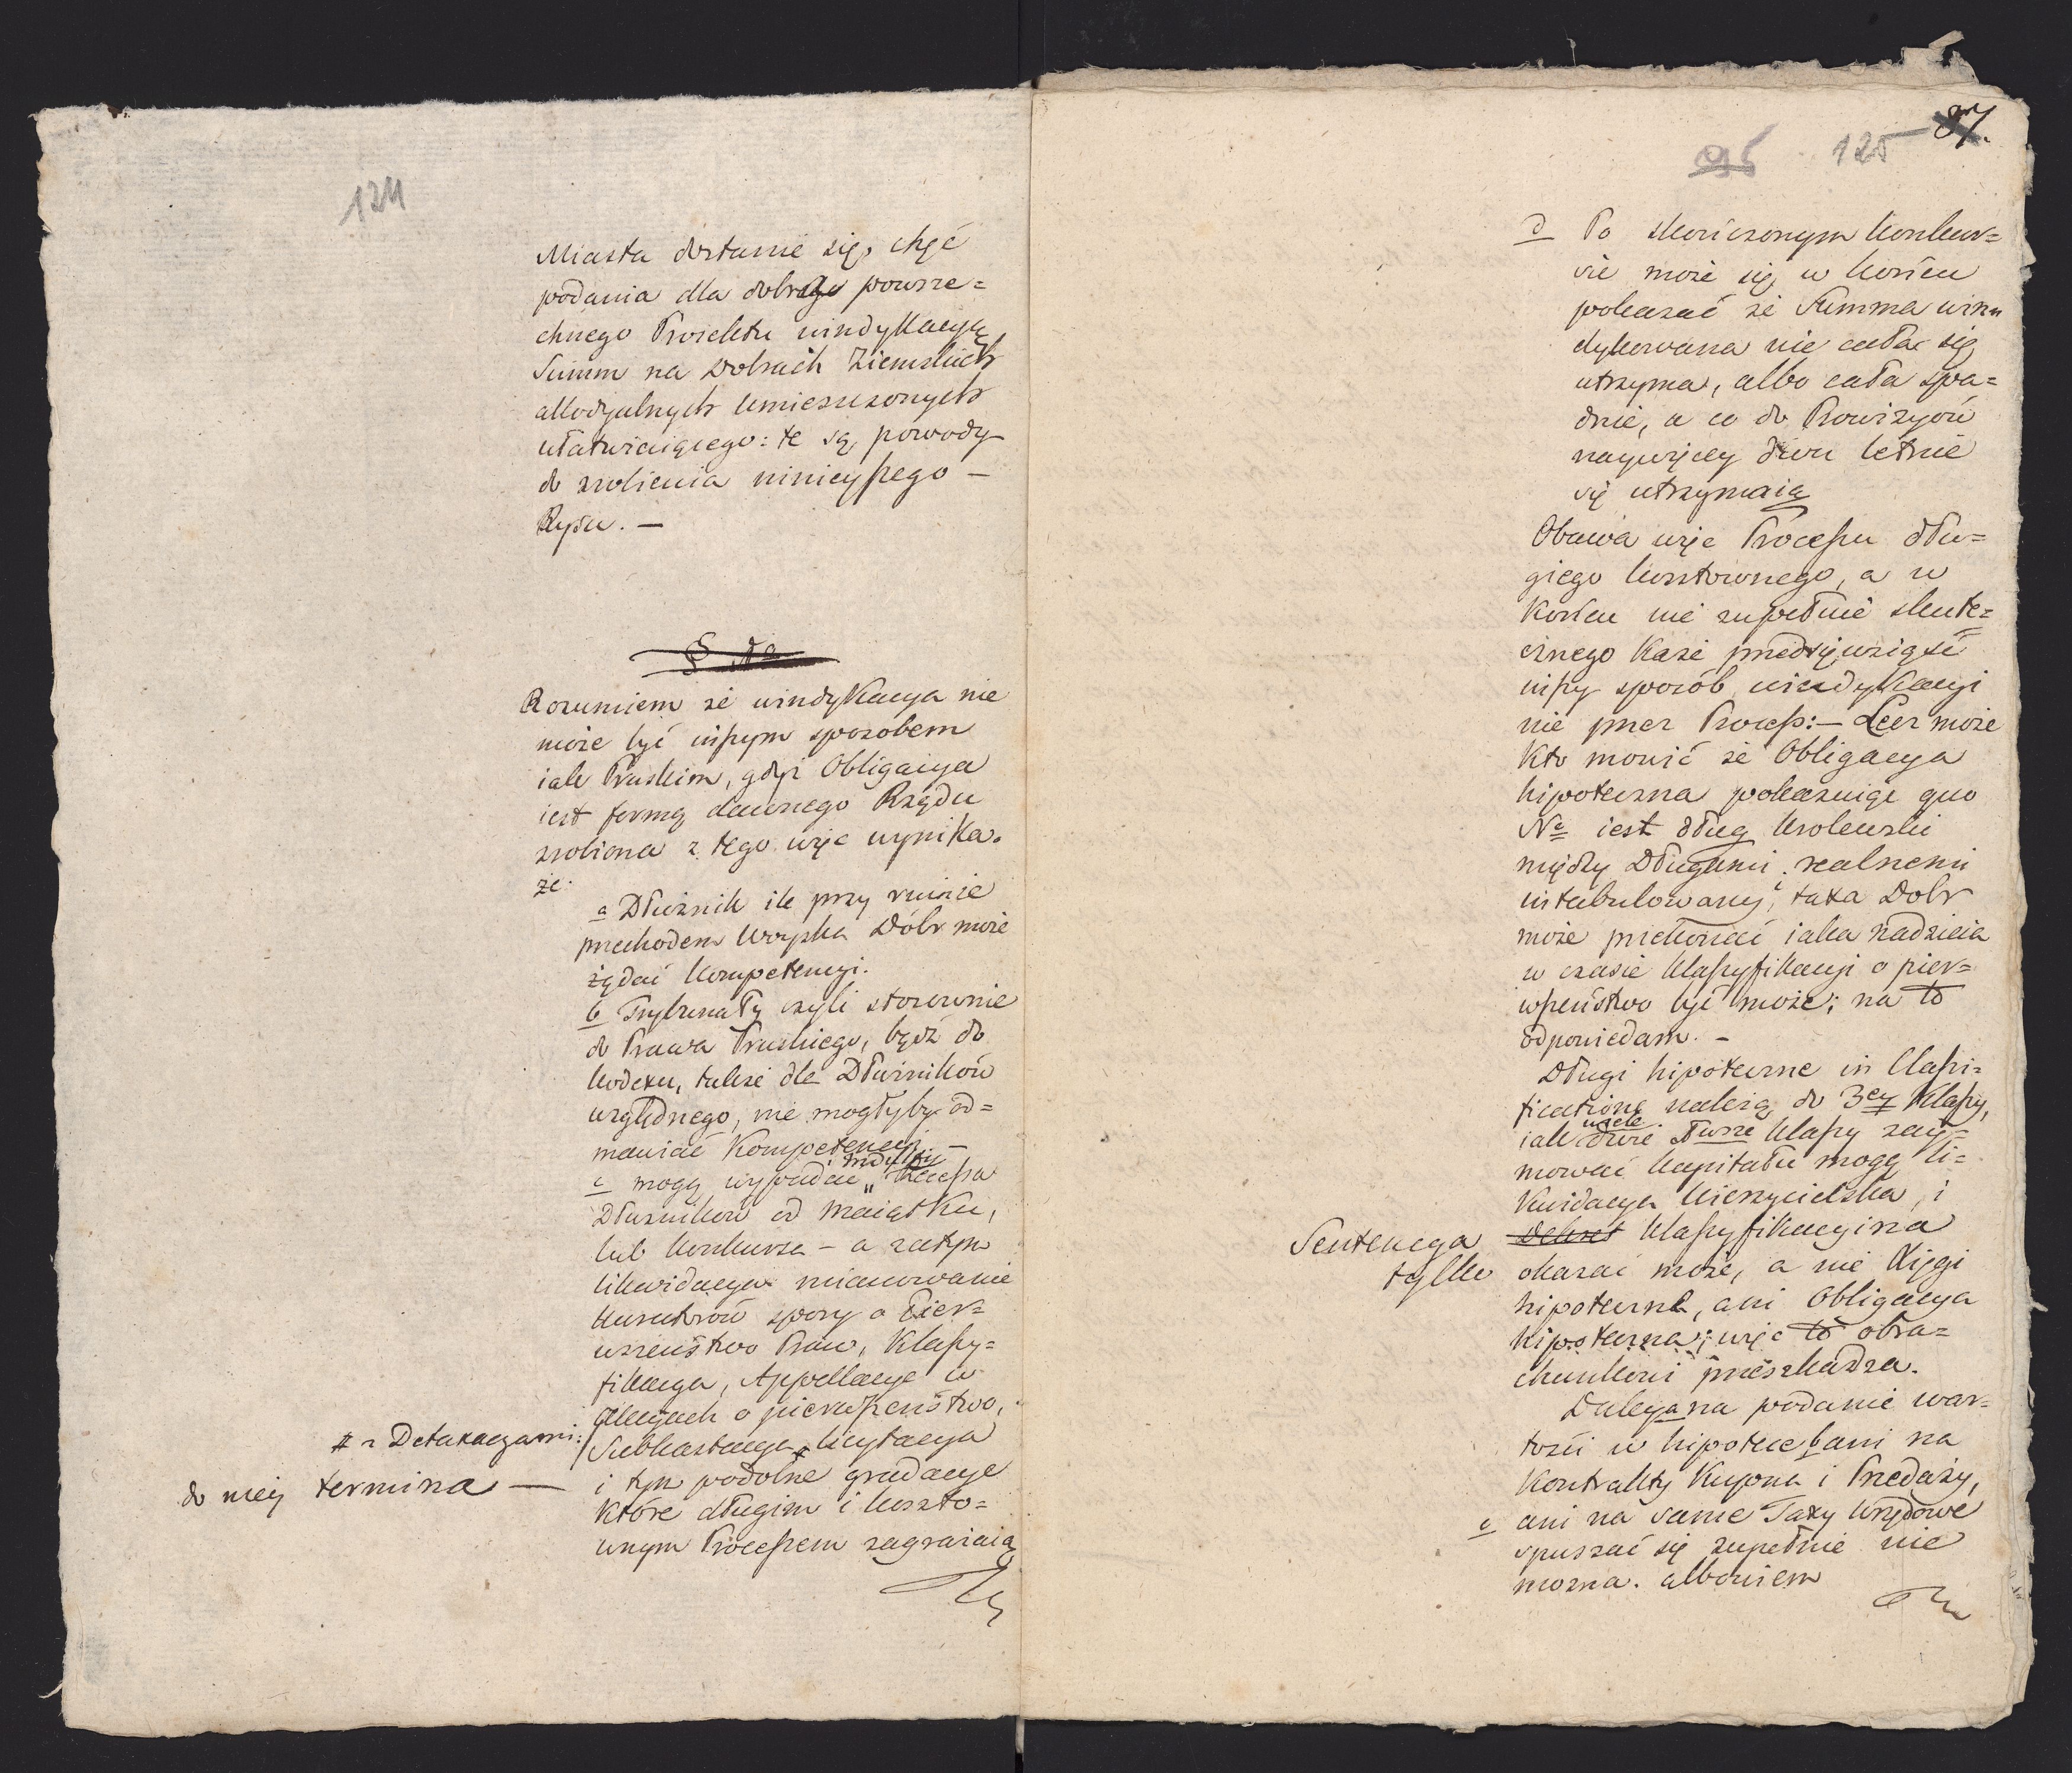 124
Miasta dostanie się, chęć
podania dla dobrego powsze=
chnego Proiektu windykacyą
Summ na Dobrach Ziemskich
allodyalnych umieszczonych
ułatwiaiącego: te są powody
do zrobienia ninieyszego —
Rysu. —
§
Rozumiem że windykacya nie
może być inszym sposobem
iak Pruskim, gdyż Obligacya
iest formą dawnego Rządu
zrobiona z tego więc wynika.
że.
a Dłużnik ile przy ruinie
przechodem Woyska Dóbr może
żądać Kompetencyi.
b Trybunały czyli stosownie
do Prawa Pruskiego, bądź do
Kodexu, także dla Dłużników
względnego, nie mogłyby od=
mawiać Kompetencyi —
c mogą wypadać " Recessa
Dłużników od Maiątku,
lub Konkursa – a zatym
likwidacya mianowanie
Kuratorów spory o Pier=
wszeństwo Praw, Klassy=
fikacya, Appellacye w
Akcyach o pierwszeństwo,
# z Detaxacyami:
Subhastacya # licytacya
do niey termina —
i tym podobne gradacye
które długim i koszto=
wnym Processem zagrażaią
87.
95 125
d Po skończonym Konkur=
sie może się w końcu
pokazać że Summa win
dykowana nie cała się
utrzyma, albo cała spa=
dnie, a co do Prowizyów
naywięcey dwu letnie
się utrzymaią
Obawa więc Processu dłu=
giego kosztownego, a w
Końcu nie zupełnie skute=
cznego każe przedsięwziąść
inszy sposób windykacyi
nie przez Process: — Lecz może
Kto mówić że Obligacya
hipoteczna pokazuie quo
No iest dług Krolewski
między Długami realnemi
intabulowany, taxa Dobr
może przekonać iaka nadzieia
w czasie Klassyfikacyi o pier=
wszeństwo być może; na to
odpowiedam. –
Długi hipoteczne in Classi=
ficatione należą do 3ey Klassy,
wiele
iak dwie Klassy zay=
mować Kapitału mogą li=
kwidacya Wierzycielska, i
Sentencya
Dekret Klassyfikacyina
tylko
okazać może, a nie Xięgi
hipoteczne, ani Obligacya
hipoteczna; więc to obra=
chunkowi przeszkadza.
Daley na podanie war=
tości w hipotece, ani na
Kontrakty Kupna i Przedaży,
e ani na same Taxy Urzędowe
spuszczać się zupełnie nie
można. albowiem